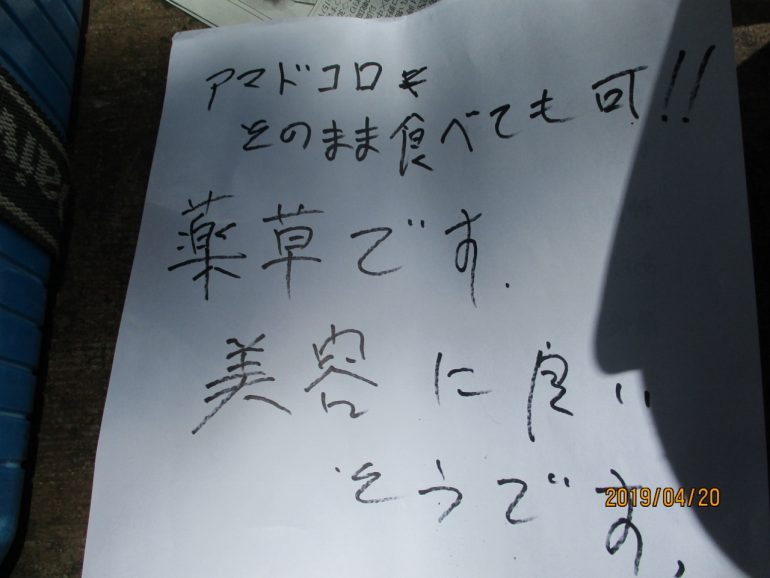 アマドコロを
そのまま食べても可!!
薬草です.
美容に良い
そうです.
2019/04/20